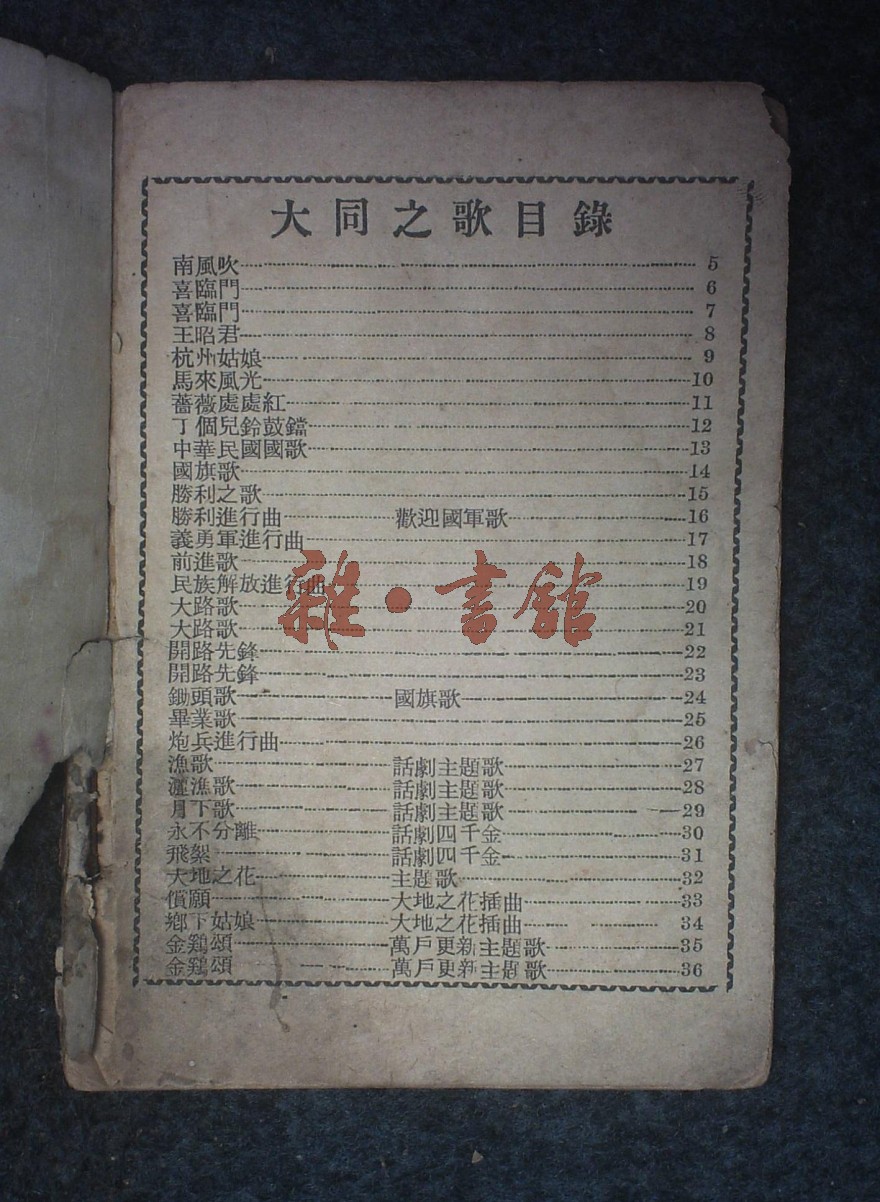 大同之歌目錄
南風吹 5
喜臨門 6
喜臨門 7
王昭君 8
杭州姑娘 9
馬來風光 10
薔薇處處紅 11
丁個兒鈴鼓鐺 12
中華民國國歌 13
國旗歌 14
勝利之歌 15
勝利進行曲 歡迎國軍歌 16
義勇軍進行曲 17
前進歌 18
民族解放進行曲 19
大路歌 20
大路歌 21
開路先鋒 22
開路先鋒 23
鋤頭歌 國旗歌 24
畢業歌 25
炮兵進行曲 26
漁歌 話劇主題歌 27
漁歌 話劇主題歌 28
月下歌 話劇主題歌 29
永不分離 話劇四千金 30
飛絮 話劇四千金 31
大地之花 主題歌 32
償願 大地之花插曲 33
鄉下姑娘 大地之花插曲 34
金鷄頌 萬戶更新主題歌 35
金鷄頌 萬戶更新主題歌 36
雜·書館